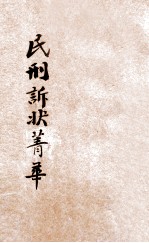 民刑訴狀菁華